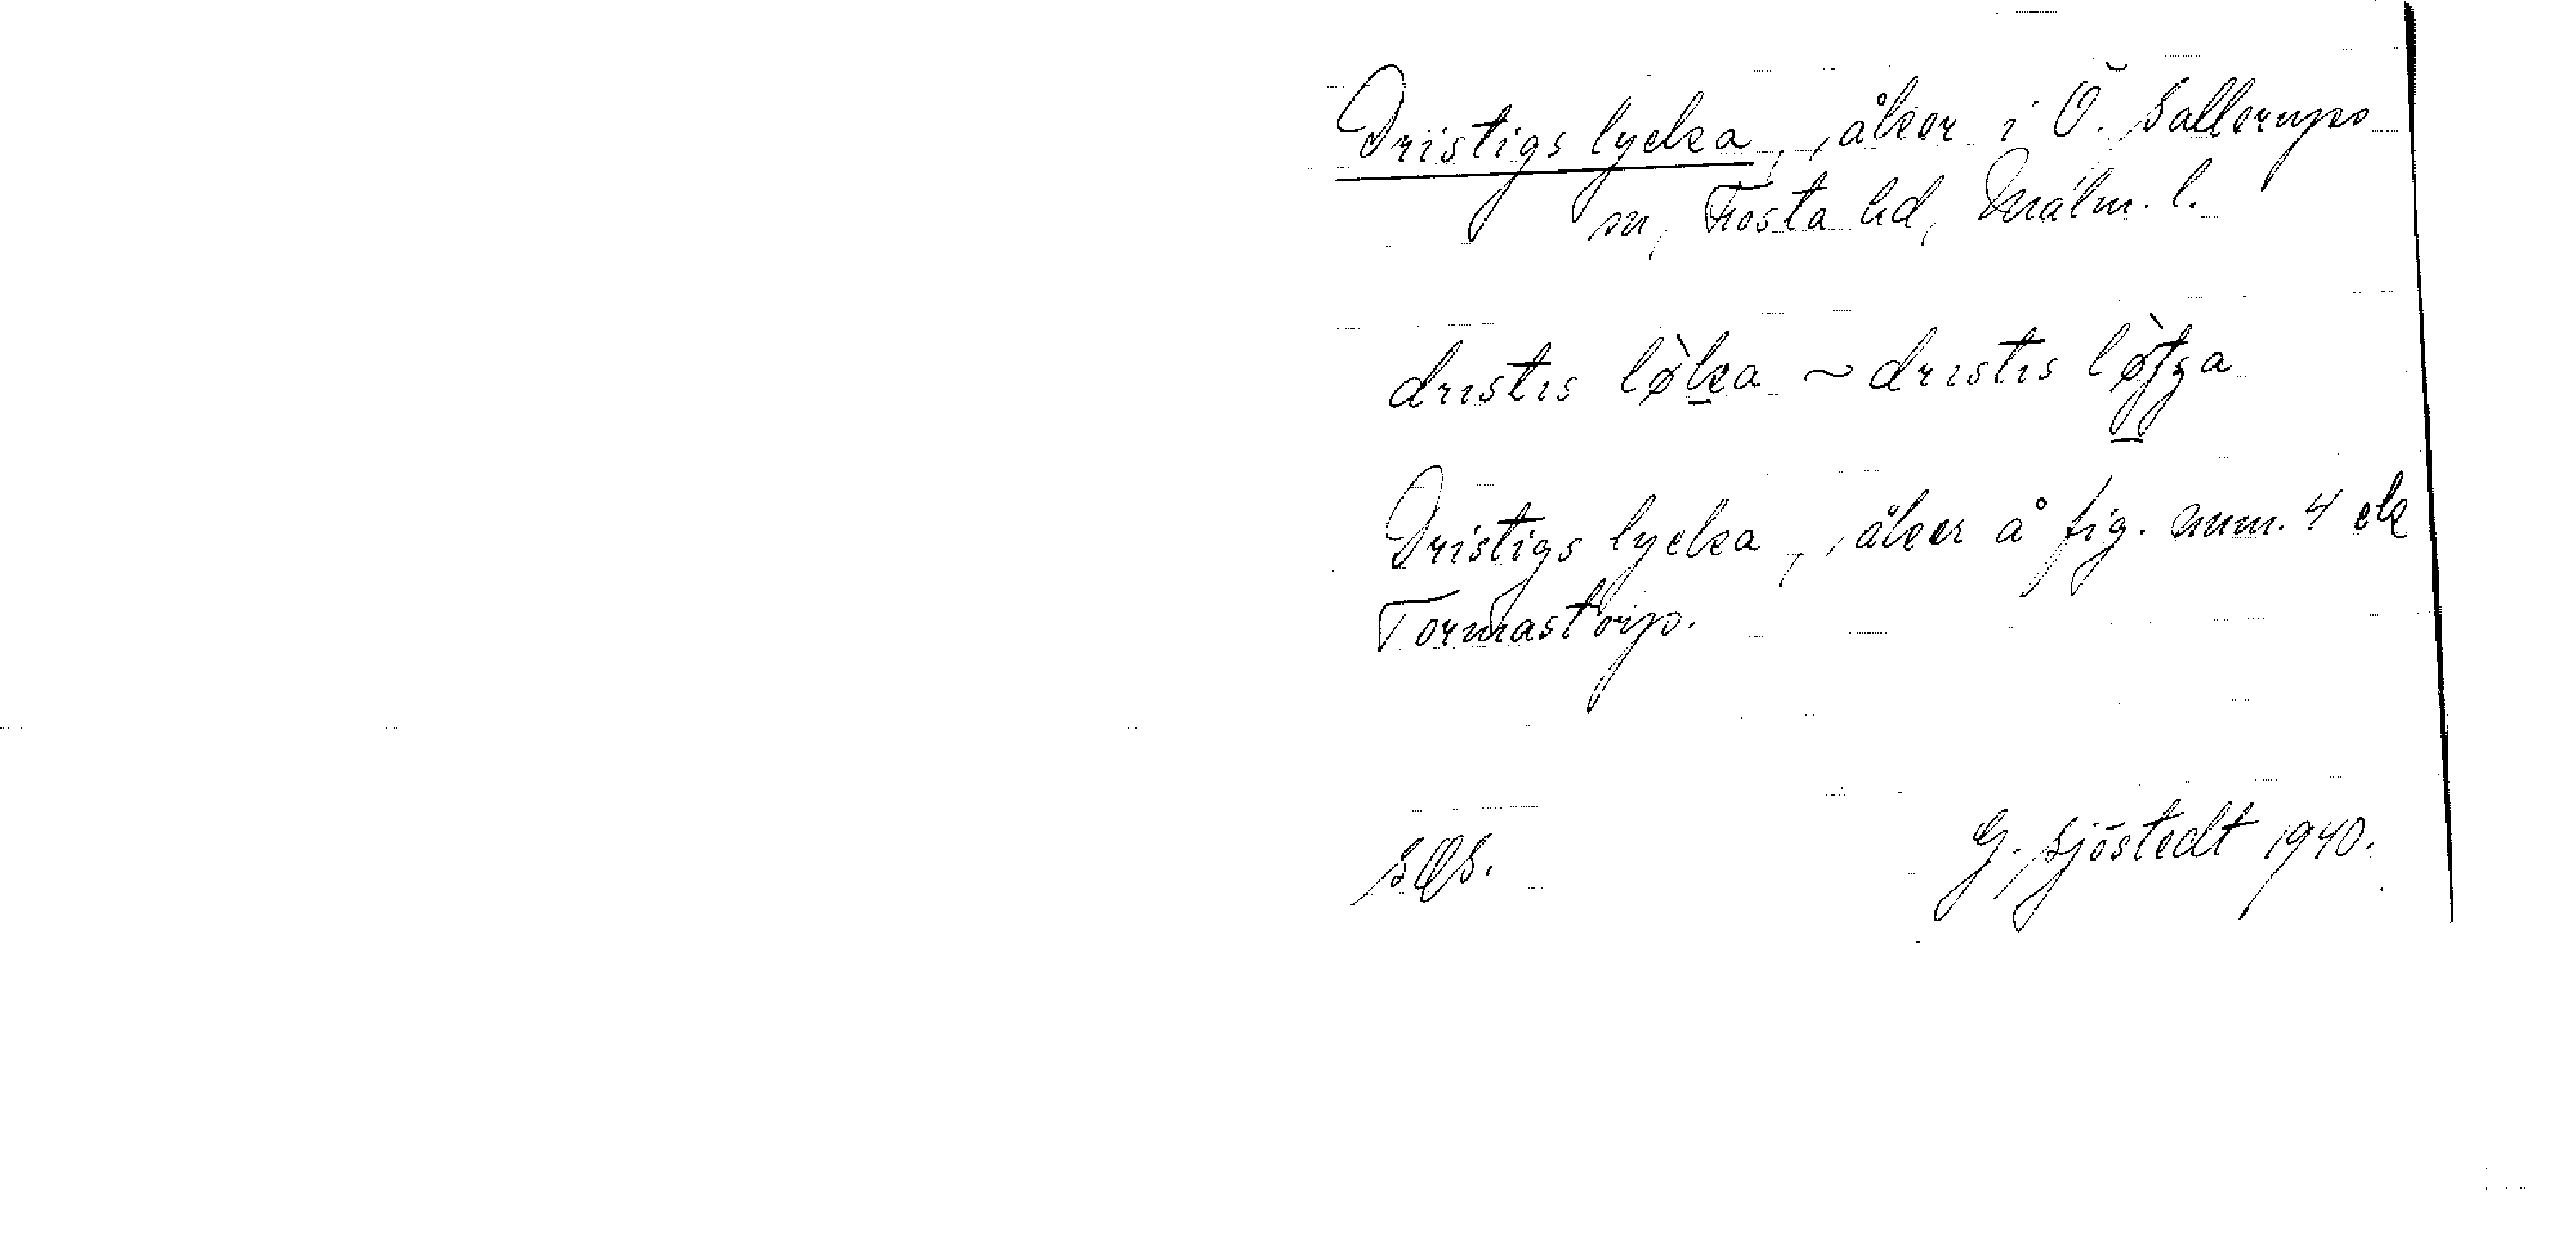 Dristigs lycka, , åker i Ö. Sallerups
sn, Frosta hd, Malm. l.
dristis lø̀ka ~ dristis lø̀tga
Dristigs lycka, , åker å fig. num. 4 ek
Tormastorp.
SOS. G. Sjöstedt 1940.